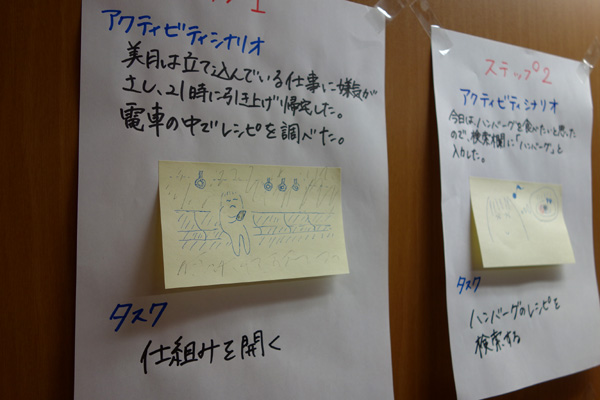 1
アクティビティシナリオ
美月は立て込んでいる仕事に嫌気が
さし、21時に引き上げ帰宅した。
電車の中でレシピを調べた。
タスク
仕組みを開く
ステップ2
アクティビティシナリオ
今日はハンバーグを食べたいと思った
ので、検索欄に「ハンバーグ」と
入力した。
タスク
ハンバーグのレシピを
検索する